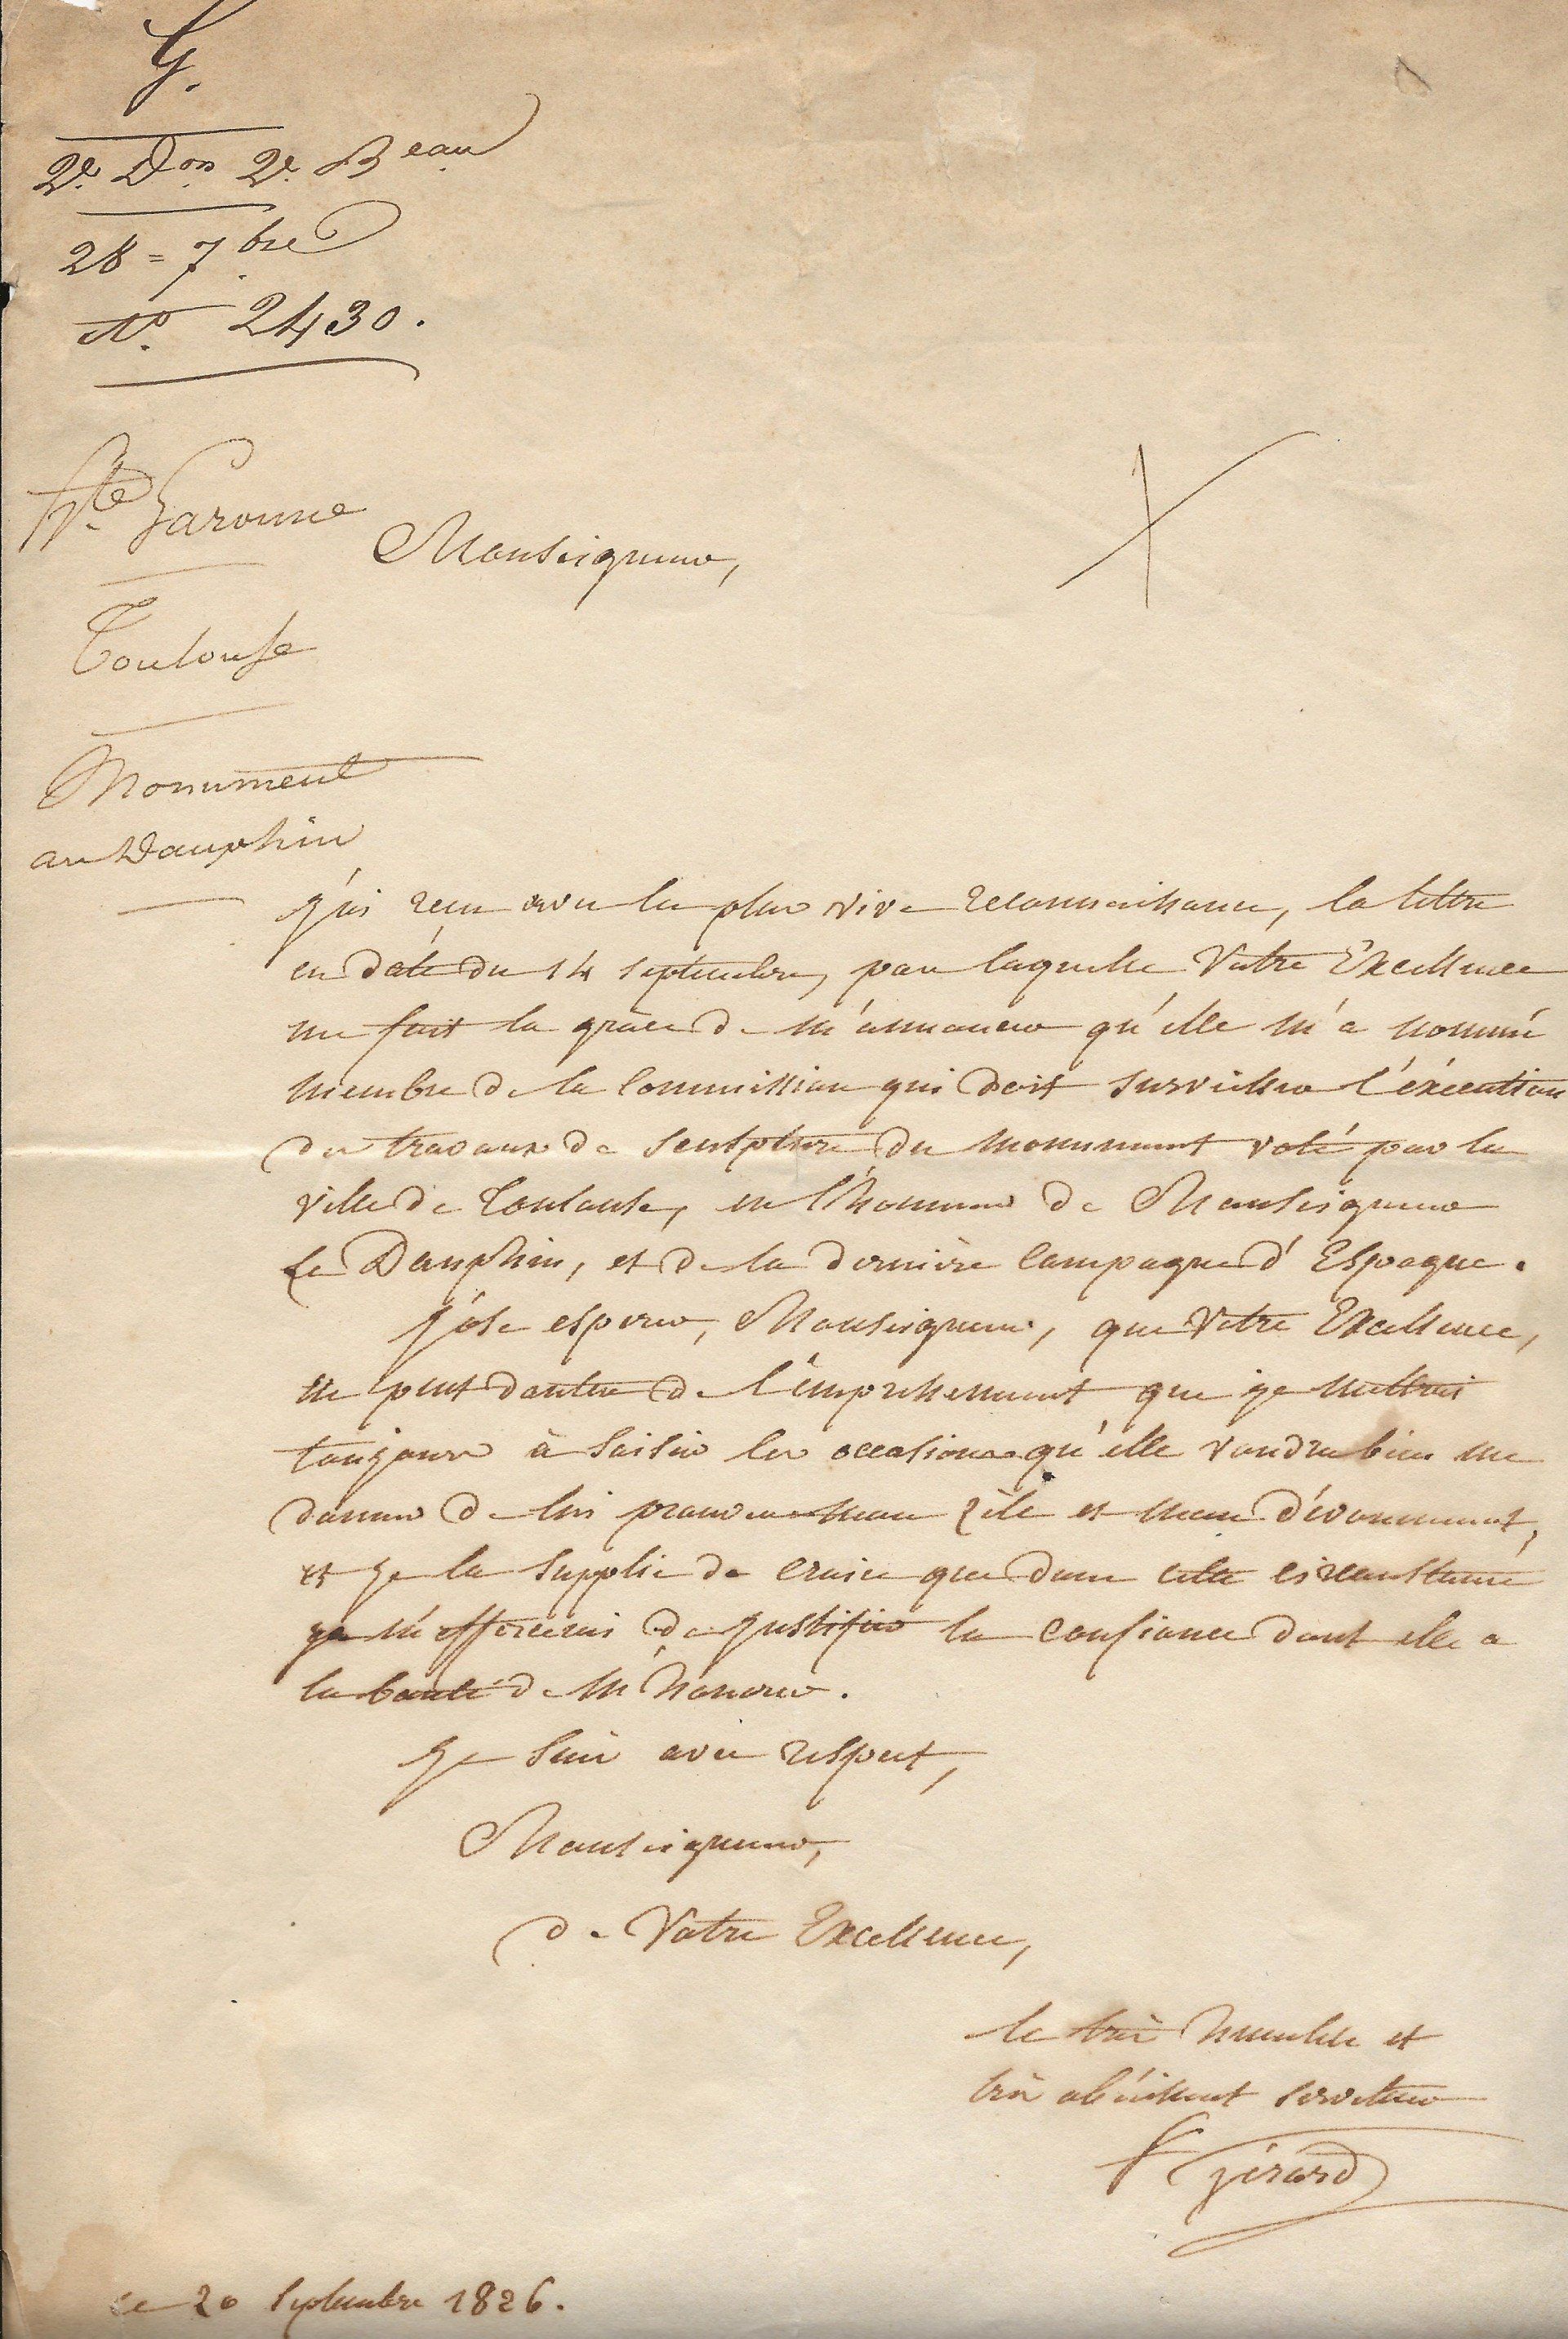 G.
2e. Don. 2e. Beau
28 = 7bre
No. 2430.
Hte Garonne
Monseigneur,
Toulouse
Monument
au Dauphin
J'ai reçu avec la plus vive reconnaissance, la lettre
en date du 14 septembre, par laquelle Votre Excellence
me fait la grâce de m'annoncer qu'elle m'a nommé
membre de la Commission qui doit surveiller l'éxécution
des travaux de sculpture du monument voté par la
ville de Toulouse, en l'honneur de Monseigneur
Le Dauphin, et de la dernière Campagne d'Espagne.
J'ose esperer, Monseigneur, que Votre Excellence,
ne peut douter de l'empressement que je mettrai
toujours à saisir les occasions qu'elle voudra bien me
donner de lui prouver mon zèle et mon dévouement,
et je la supplie de croire que dans cette circonstance
je m'efforcerai de justifier la confiance dont elle a
la bonté de m'honorer.
Je suis avec respect,
Monseigneur,
de Votre Excellence,
le très humble et
très obéissant serviteur
F Gérard
ce 20 Septembre 1826.